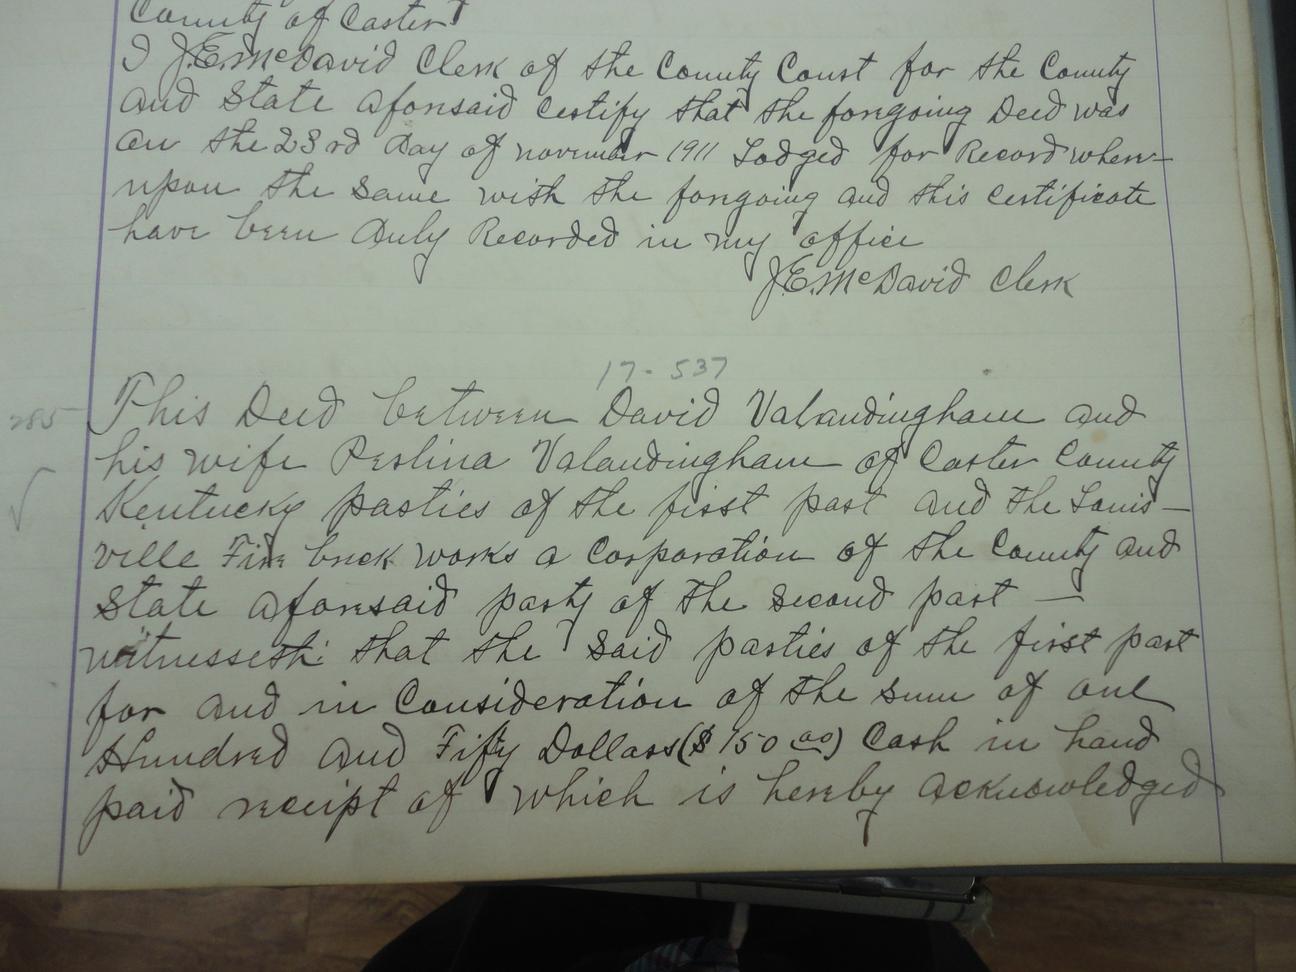 County of Carter
I J.E. McDavid Clerk of the County Court for the County
and State aforesaid certify that the forgoing Deed was
on the 23rd day of november 1911 Lodged for Record when-
upon the same with the forgoing and this certificate
have been duly Recorded in my office
J.E. McDavid Clerk
17-537
285 This Deed between David Valandingham and
his wife Perlina Valandingham of Carter County
Kentucky parties of the first part and the Louis-
ville Fire brick works a Corporation of the County and
State aforesaid party of the second part —
witnesseth: that the said parties of the first part
for and in Consideration of the sum of one
Hundred and Fifty Dollars ($150 00) Cash in hand
paid receipt of which is hereby acknowledged